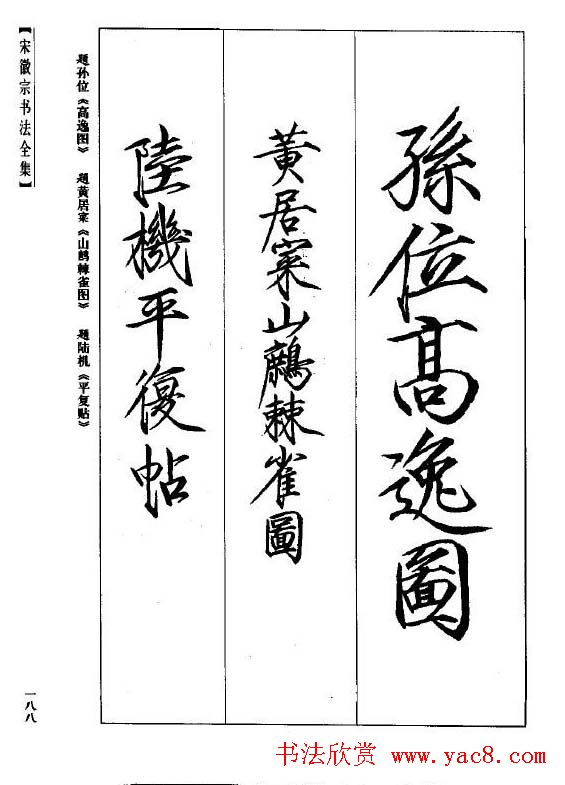 孫位髙逸圖
黃居寀山鷓棘雀圖
陸機平復帖
题孙位《高逸图》 题黄居寀《山鹧棘雀图》 题陆机《平复贴》
【宋徽宗书法全集】
一八八
书法欣赏 www.yac8.com